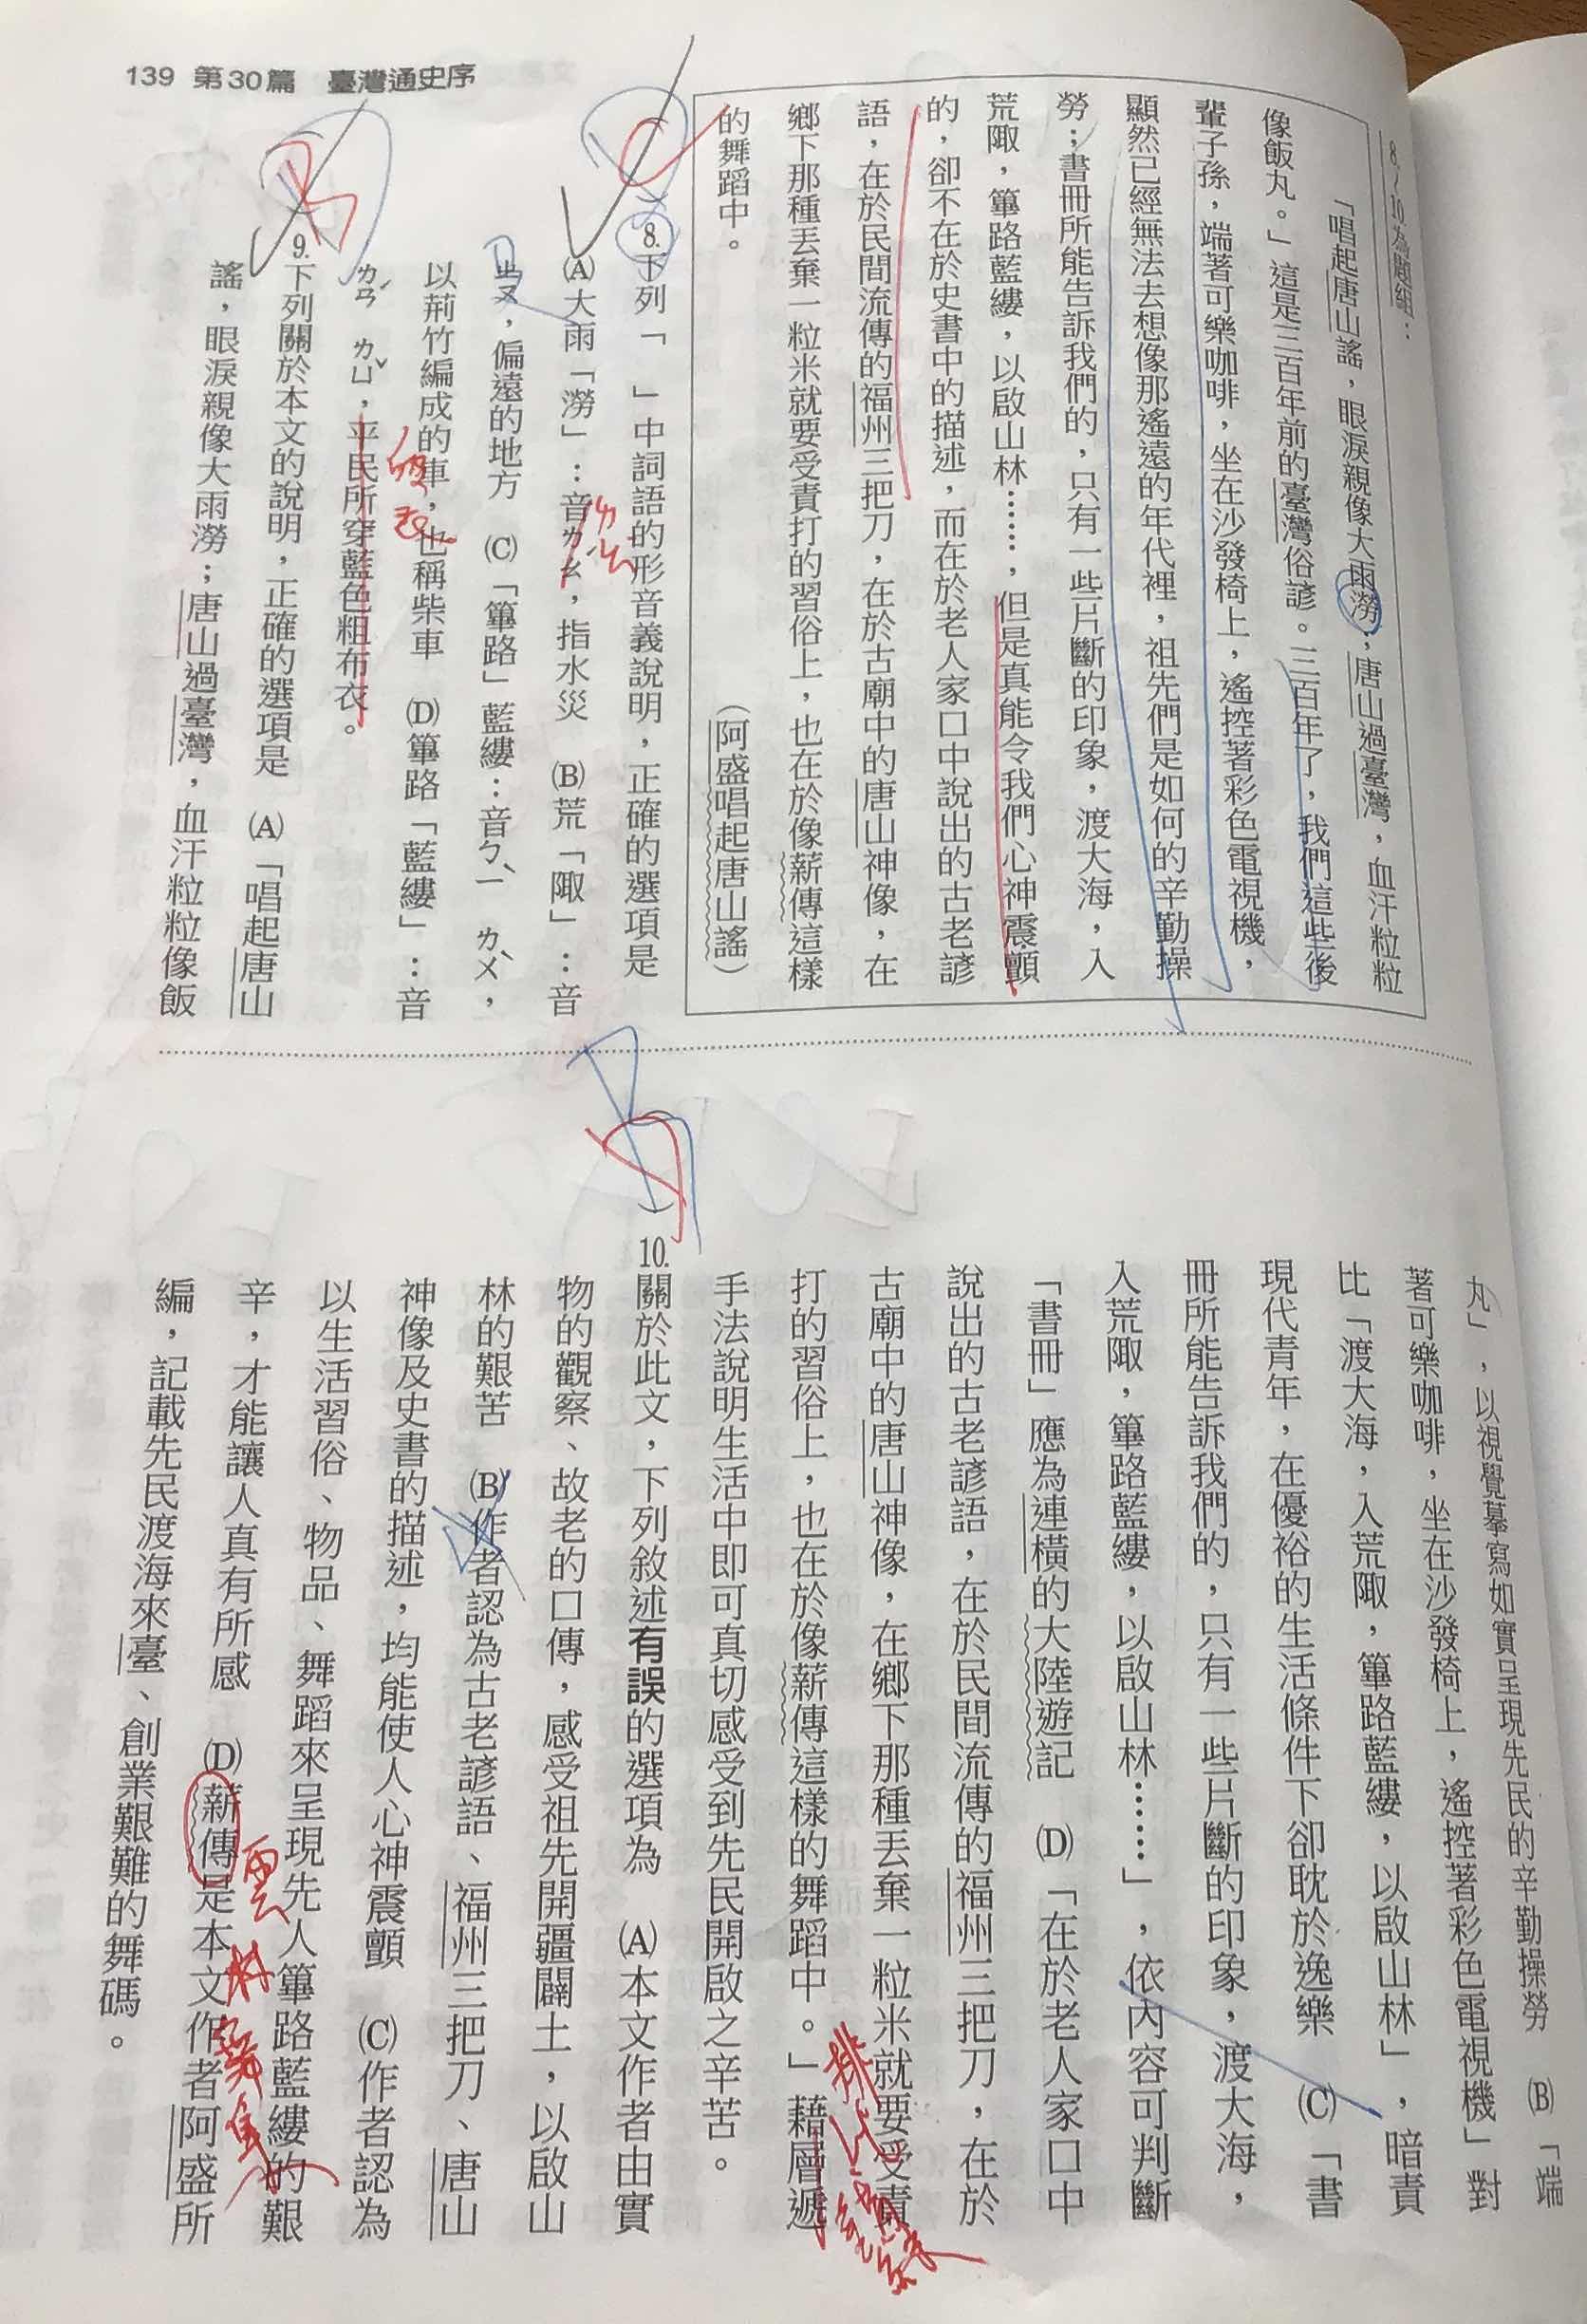 139 第30篇 臺灣通史序
8.~10.為題組：
「唱起唐山謠，眼淚親像大雨澇；唐山過臺灣，血汗粒粒
像飯丸。」這是三百年前的臺灣俗諺。三百年了，我們這些後
輩子孫，端著可樂咖啡，坐在沙發椅上，遙控著彩色電視機，
顯然已經無法去想像那遙遠的年代裡，祖先們是如何的辛勤操
勞；書冊所能告訴我們的，只有一些片斷的印象，渡大海，入
荒陬，篳路藍縷，以啟山林……，但是真能令我們心神震顫
的，卻不在於史書中的描述，而在於老人家口中說出的古老諺
語，在於民間流傳的福州三把刀，在於古廟中的唐山神像，在
鄉下那種丟棄一粒米就要受責打的習俗上，也在於像薪傳這樣
的舞蹈中。
（阿盛唱起唐山謠）
C
8.下列「 」中詞語的形音義說明，正確的選項是
(A)大雨「澇」：音ㄌㄠˊ，指水災 (B)荒「陬」：音
ㄓㄡ，偏遠的地方 (C)「篳路」藍縷：音ㄅㄧˋ ㄌㄨˋ，
以荊竹編成的車，也稱柴車 (D)篳路「藍縷」：音
ㄌㄢˊ ㄌㄩˇ，平民所穿藍色粗布衣。
ㄌㄠˋ
B
9.下列關於本文的說明，正確的選項是 (A)「唱起唐山
謠，眼淚親像大雨澇；唐山過臺灣，血汗粒粒像飯
丸」，以視覺摹寫如實呈現先民的辛勤操勞 (B)「端
著可樂咖啡，坐在沙發椅上，遙控著彩色電視機」對
比「渡大海，入荒陬，篳路藍縷，以啟山林」，暗責
現代青年，在優裕的生活條件下卻耽於逸樂 (C)「書
冊所能告訴我們的，只有一些片斷的印象，渡大海，
入荒陬，篳路藍縷，以啟山林……」，依內容可判斷
「書冊」應為連橫的大陸遊記 (D)「在於老人家口中
說出的古老諺語，在於民間流傳的福州三把刀，在於
古廟中的唐山神像，在鄉下那種丟棄一粒米就要受責
打的習俗上，也在於像薪傳這樣的舞蹈中。」藉層遞
手法說明生活中即可真切感受到先民開啟之辛苦。
排比
B
10.關於此文，下列敘述有誤的選項為 (A)本文作者由實
物的觀察、故老的口傳，感受祖先開疆闢土，以啟山
林的艱苦 (B)作者認為古老諺語、福州三把刀、唐山
神像及史書的描述，均能使人心神震顫 (C)作者認為
以生活習俗、物品、舞蹈來呈現先人篳路藍縷的艱
辛，才能讓人真有所感 (D)薪傳是本文作者阿盛所
編，記載先民渡海來臺、創業艱難的舞碼。
雲門舞集